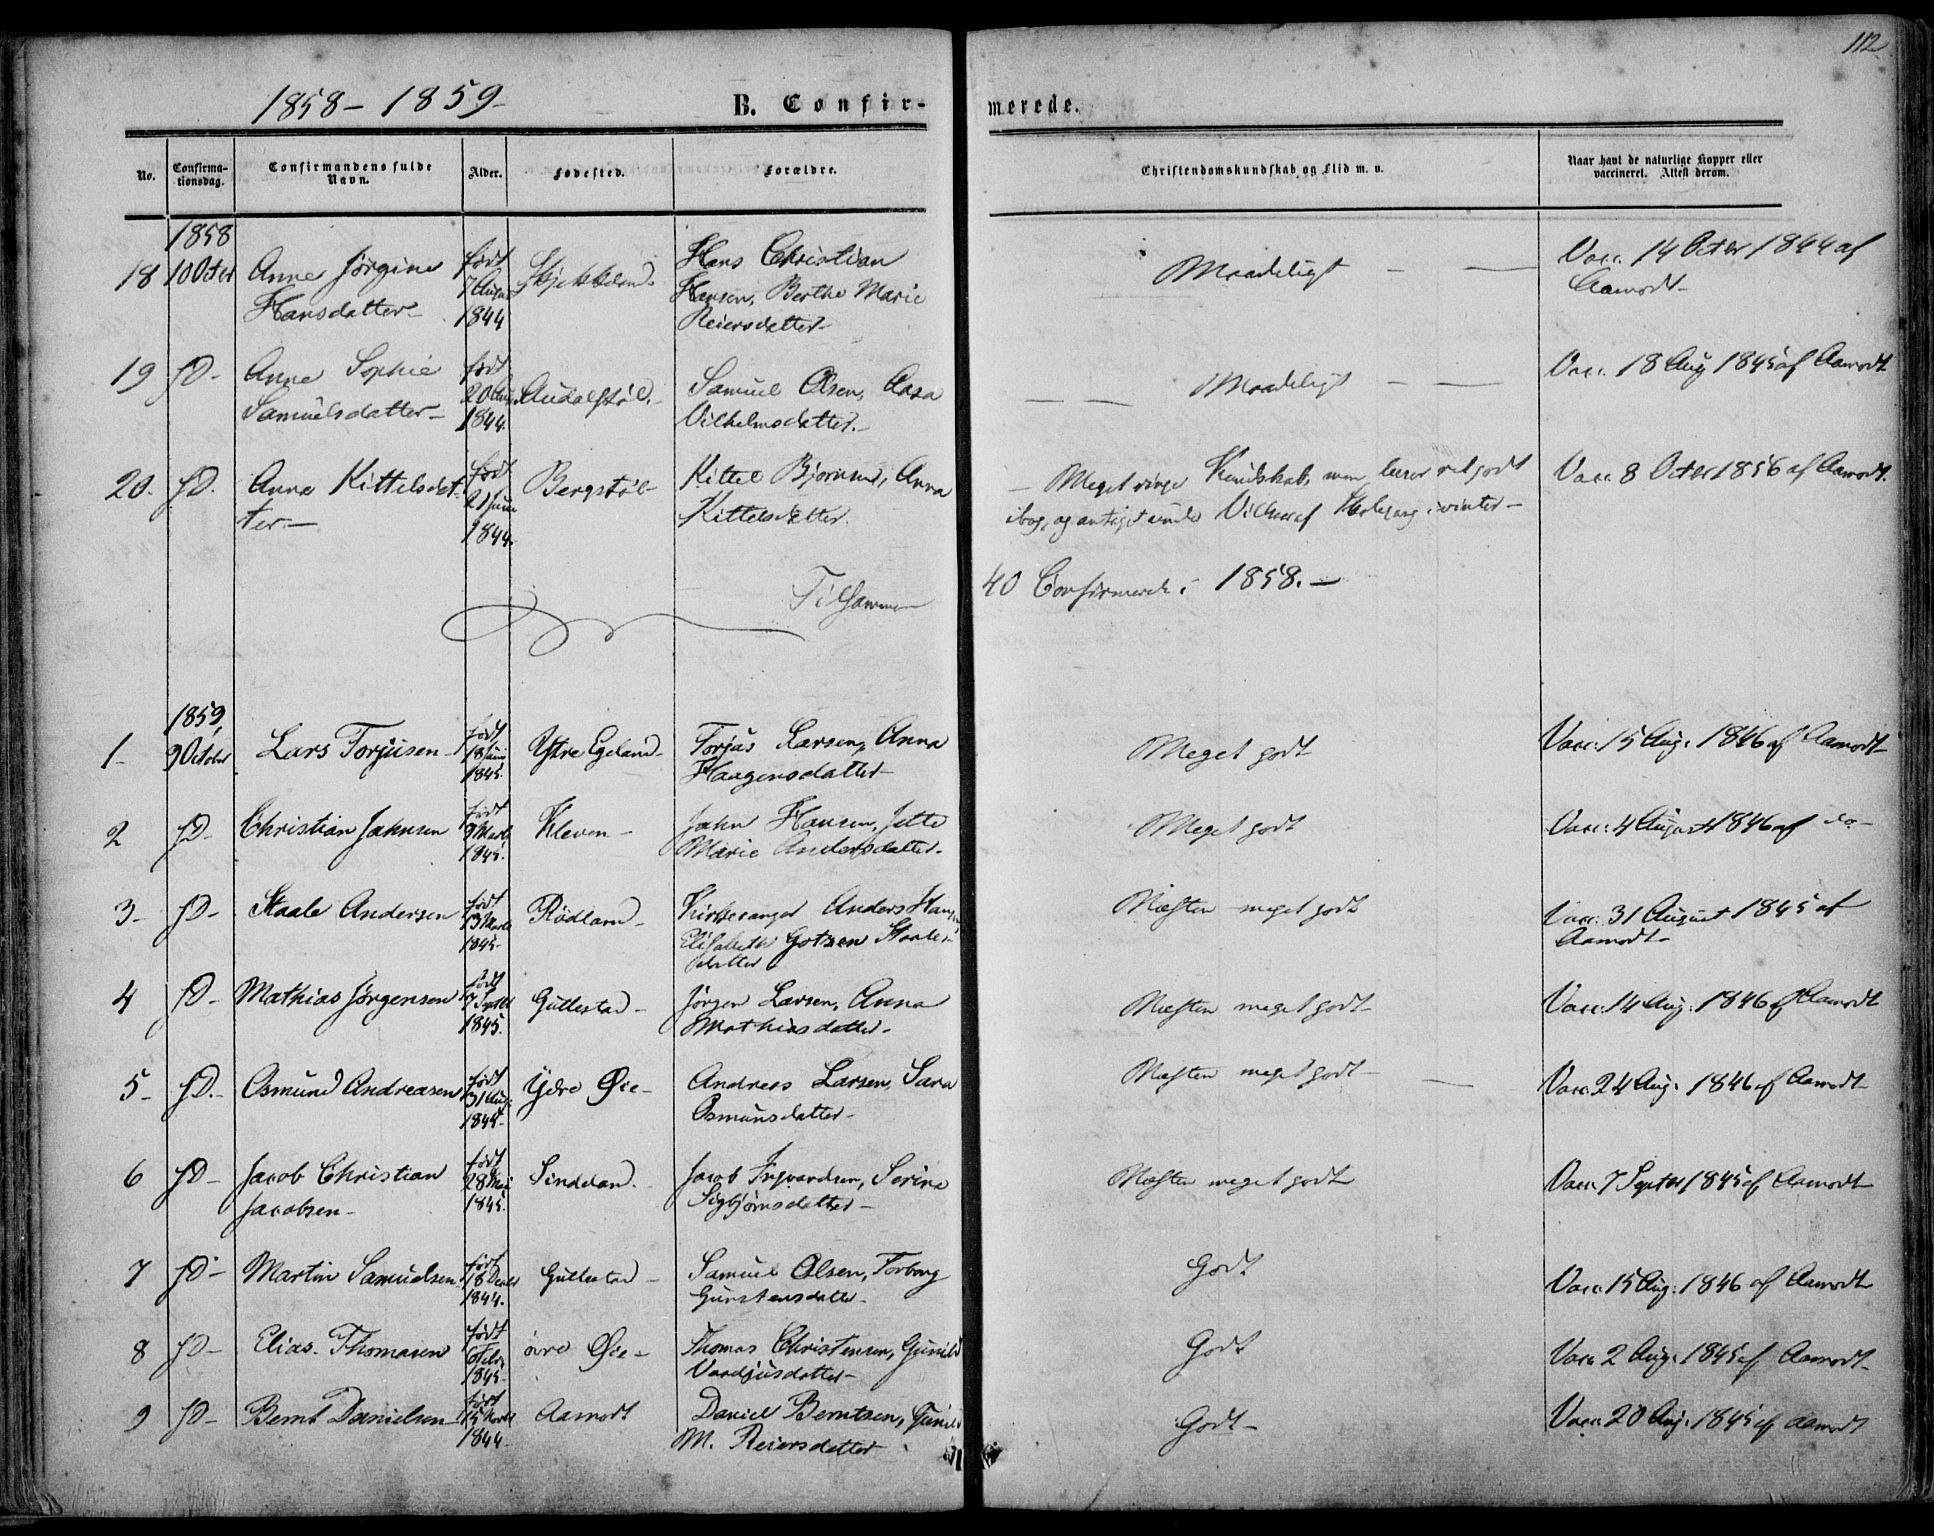 112
1858 - 1859 -
B. Confirmerede.
No. Confirmationsdag. Confirmandens fulde Navn. Alder. Fødested. Forældre. Christendomskundskab og Flid m. v. Naar havt de naturlige Kopper eller vaccineret. Attest derom.
1858
18 10 Octer Anne Jörgine Hansdatter - født 7 Aug 1844 Hans Christian Hansen, Berthe Marie Reiersdatter - Maadeligt - Vacc. 14 Octer 1844 af Aamodt -
19 fD - Anne Sophie Samuelsdatter - født 20 Aug 1844. Samuel Olsen, Aasa Vilhelmsdatter. - Maadeligt - Vacc. 18 Aug 1845 af Aamodt
20. fD. Anne Kittelsdatter. - født 21 Juni 1844. Bergstøl - Kittel Bjørnsen, Anna Kittelsdatter. - Meget ringe Kundskab, men læser ret godt
ibog, og Skolegang i vinter -
Vacc. 8 Octer 1856 af Aamodt.
Tilsammen 40 Confirmerede i 1858. -
1859
1 - 9 October Lars Torjusen - født 18 Juni 1845. Ytre Egeland - Torjus Larsen, Anna Haagensdatter - Meget godt Vacc. 15 Aug. 1846 af Aamodt -
2 fD - Christian Jahnsen født 9 Marts 1845. Kleven - Jahn Hansen, Jette Marie Andersdatter. - Meget godt Vacc. 4 August 1846 af do -
3 - fD - Staale Andersen født 13 Marts 1845 - Rødland - Kirkesanger Anders Hansen Elisabeth Gotzen Staalesdatter Næsten meget godt Vacc. 31 August 1845 af Aamodt -
4 fD - Mathias Jørgensen født 7 Septbr 1845. Gullestad - Jörgen Larsen, Anna Mathiasdatter. - Næsten meget godt - Vacc. 14 Aug. 1846 af Aamodt
5 - fD. - Osmund Andreasen født 31 Aug. Ydre Øie - Andreas Larsen, Sara Osmunsdatter - Næsten meget godt - Vacc. 24 Aug. 1846 af Aamodt -
6 fD - Jacob Christian Jacobsen - født 28 Mai 1845. Sindeland. Jacob Ingvardsen, Serine Sigbjørnsdatter - Næsten meget godt Vacc. 7 Septer 1845 af Aamodt
7 fD - Martin Samuelsen. født 18 Decbr 1844. Gullestad - Samuel Olsen, Torborg Gunstensdatter - Godt Vacc. 15 Aug. 1846 af Aamodt
8 fD - Elias. Thomasen født 6 Febr 1845 - övre Øie - Thomas Christensen, Gunild Vardjusdatter - Godt Vacc. 2 Aug. 1845 af Aamodt -
9 fD - Bernt Danielsen - født 1844 - Aamodt Daniel Berntsen, Gunild M. Reiersdatter Godt - Vacc. 20 Aug. 1845 af Aamodt